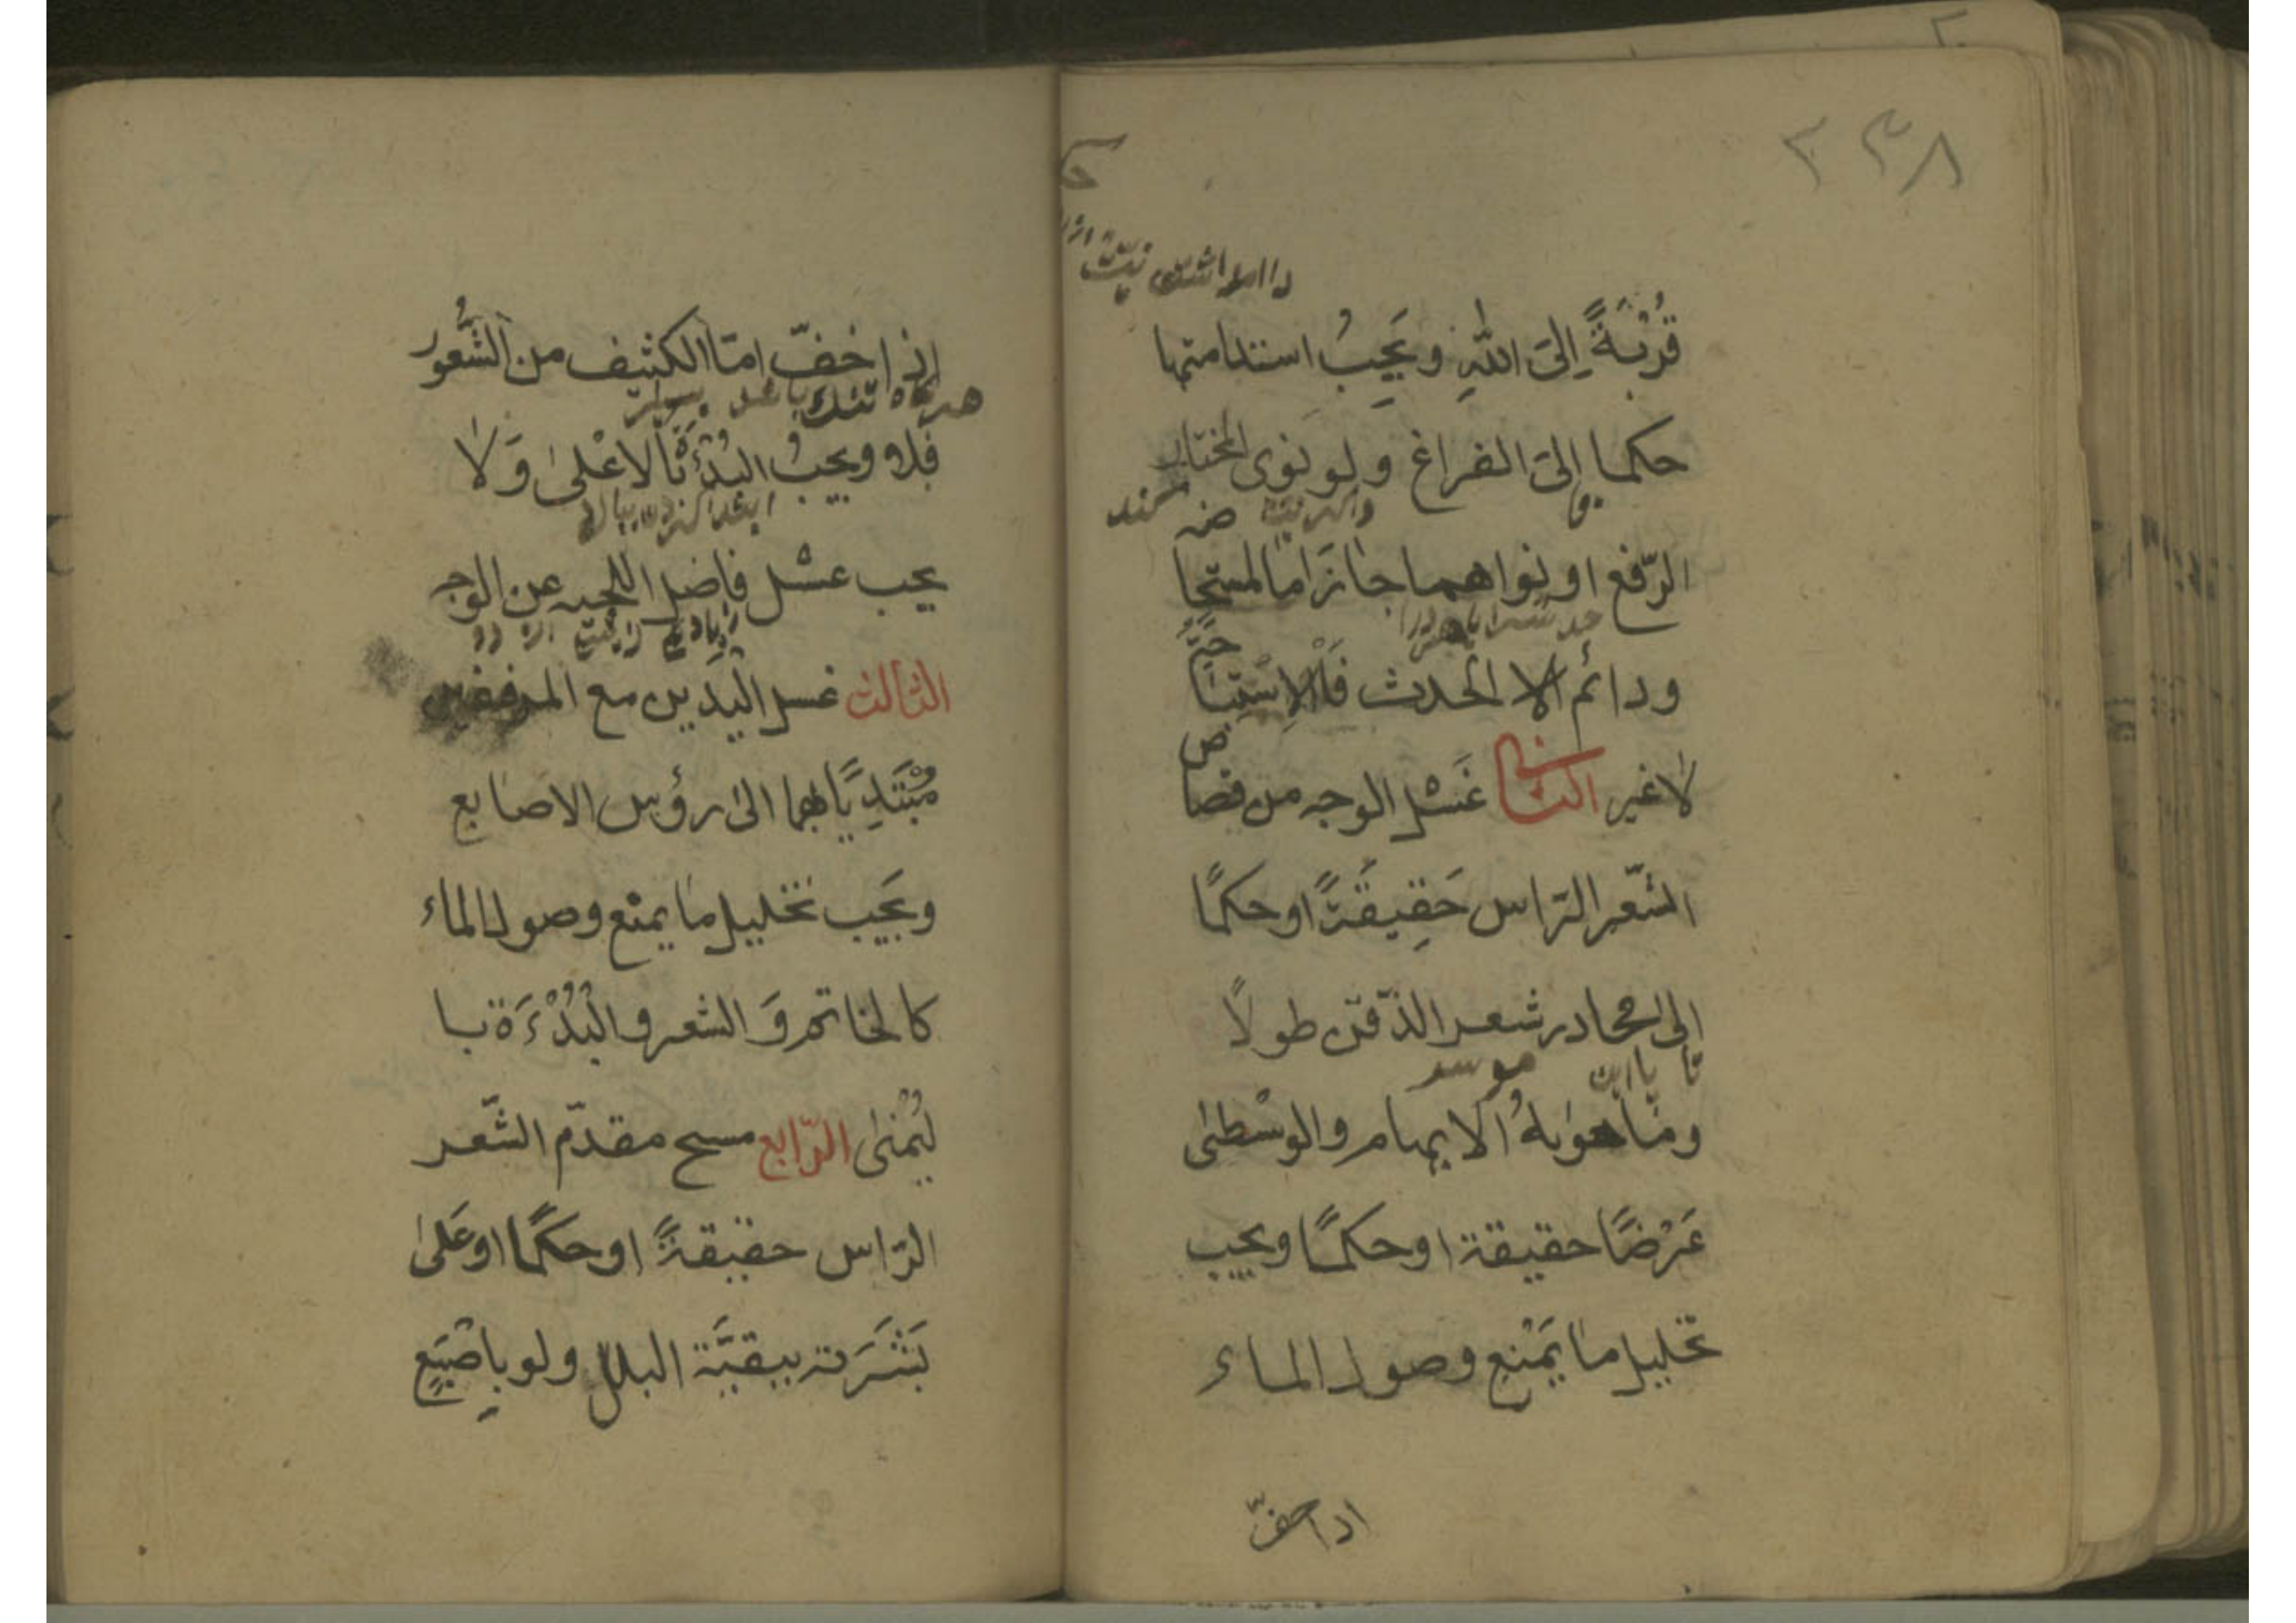 ٢٣٨
قُرْبَةً إِلىَ اللّٰهِ وَيَجِبُ استدامتها
حكما إلى الفراغ ولو نوى المختار
الرّفع او نواهما جاز اما المستحا
ودائم الحدث فَالاِسْتِبَا
حَةُ
لا غير الثاني غَسْل الوجه من قصا
ص
الشّعر الرّاس حَقِيقَةً او حكمًا
إلى محادر شعر الذّقن طولًا
تا
موسر
وما حواهُ الابهام والوسْطىٰ
عَرْضًا حقيقة او حكمًا ويجب
تخليل ما يَمْنع وصول الماء
اذا خفّ
إذا خفّ امّا الكثيف من الشُّعور
هرگاه تنك باشد
فلا ويجبُ البُدْءَةُ بالاعْلىٰ وَلا
ابتدا كردن ببالا
يجب غسْل فاضل اللحيه عن الوجه
زيادتي از رو
الثالث غسل اليَدَين مع المرفقين
مُبْتَدِيًا بهما الىٰ رؤس الاصابع
ويَجب تخليل ما يمنْع وصول الماء
كالخاتم وَ الشعر و البُدْءَة با
ليُمْنىٰ الرّابع مسح مقدّم الشّعر
الرّاس حقيقةً او حكمًا او عَلىٰ
بَشَرَته ببقيَّة البلل ولو باِصْبَعٍ